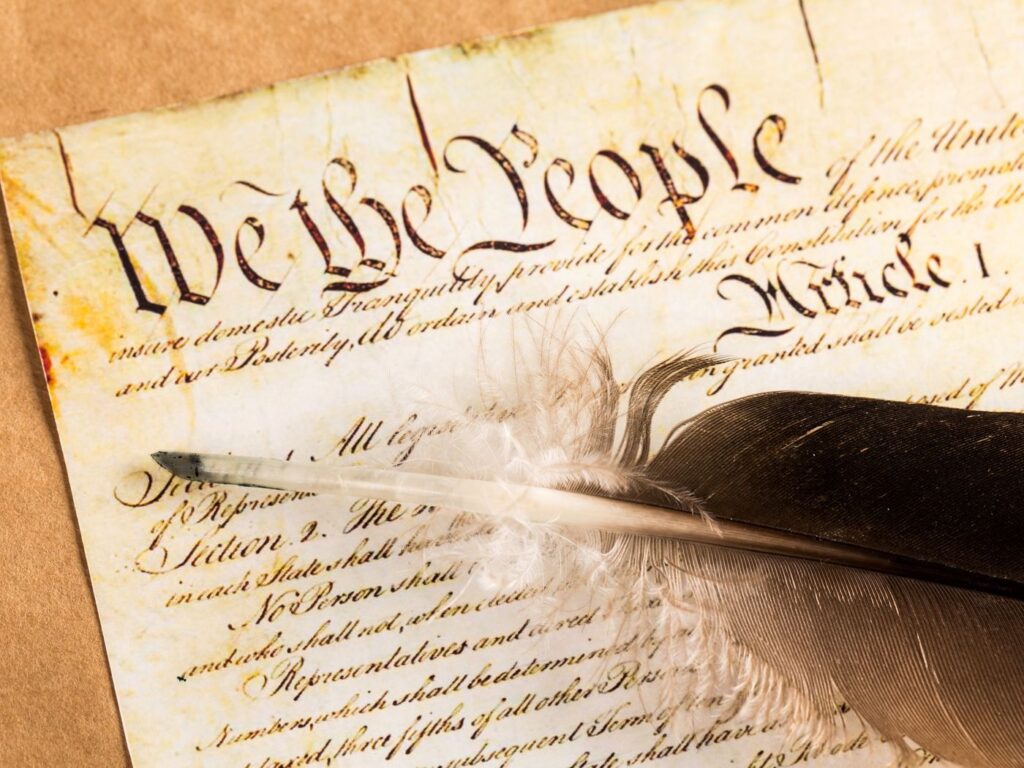 We the People of the Unite
insure domestic Tranquility, provide for the common defence, promote
and our Posterity, do ordain and establish this Constitution for the
Article. I.
granted shall be vested
All legis
of Represen
Section. 2. The
in each State shall have
No Person shall
and who shall not, when elected
Representatives and direct
Numbers, which shall be determined by
three fifths of all other Persons
subsequent Term of ten
State shall have